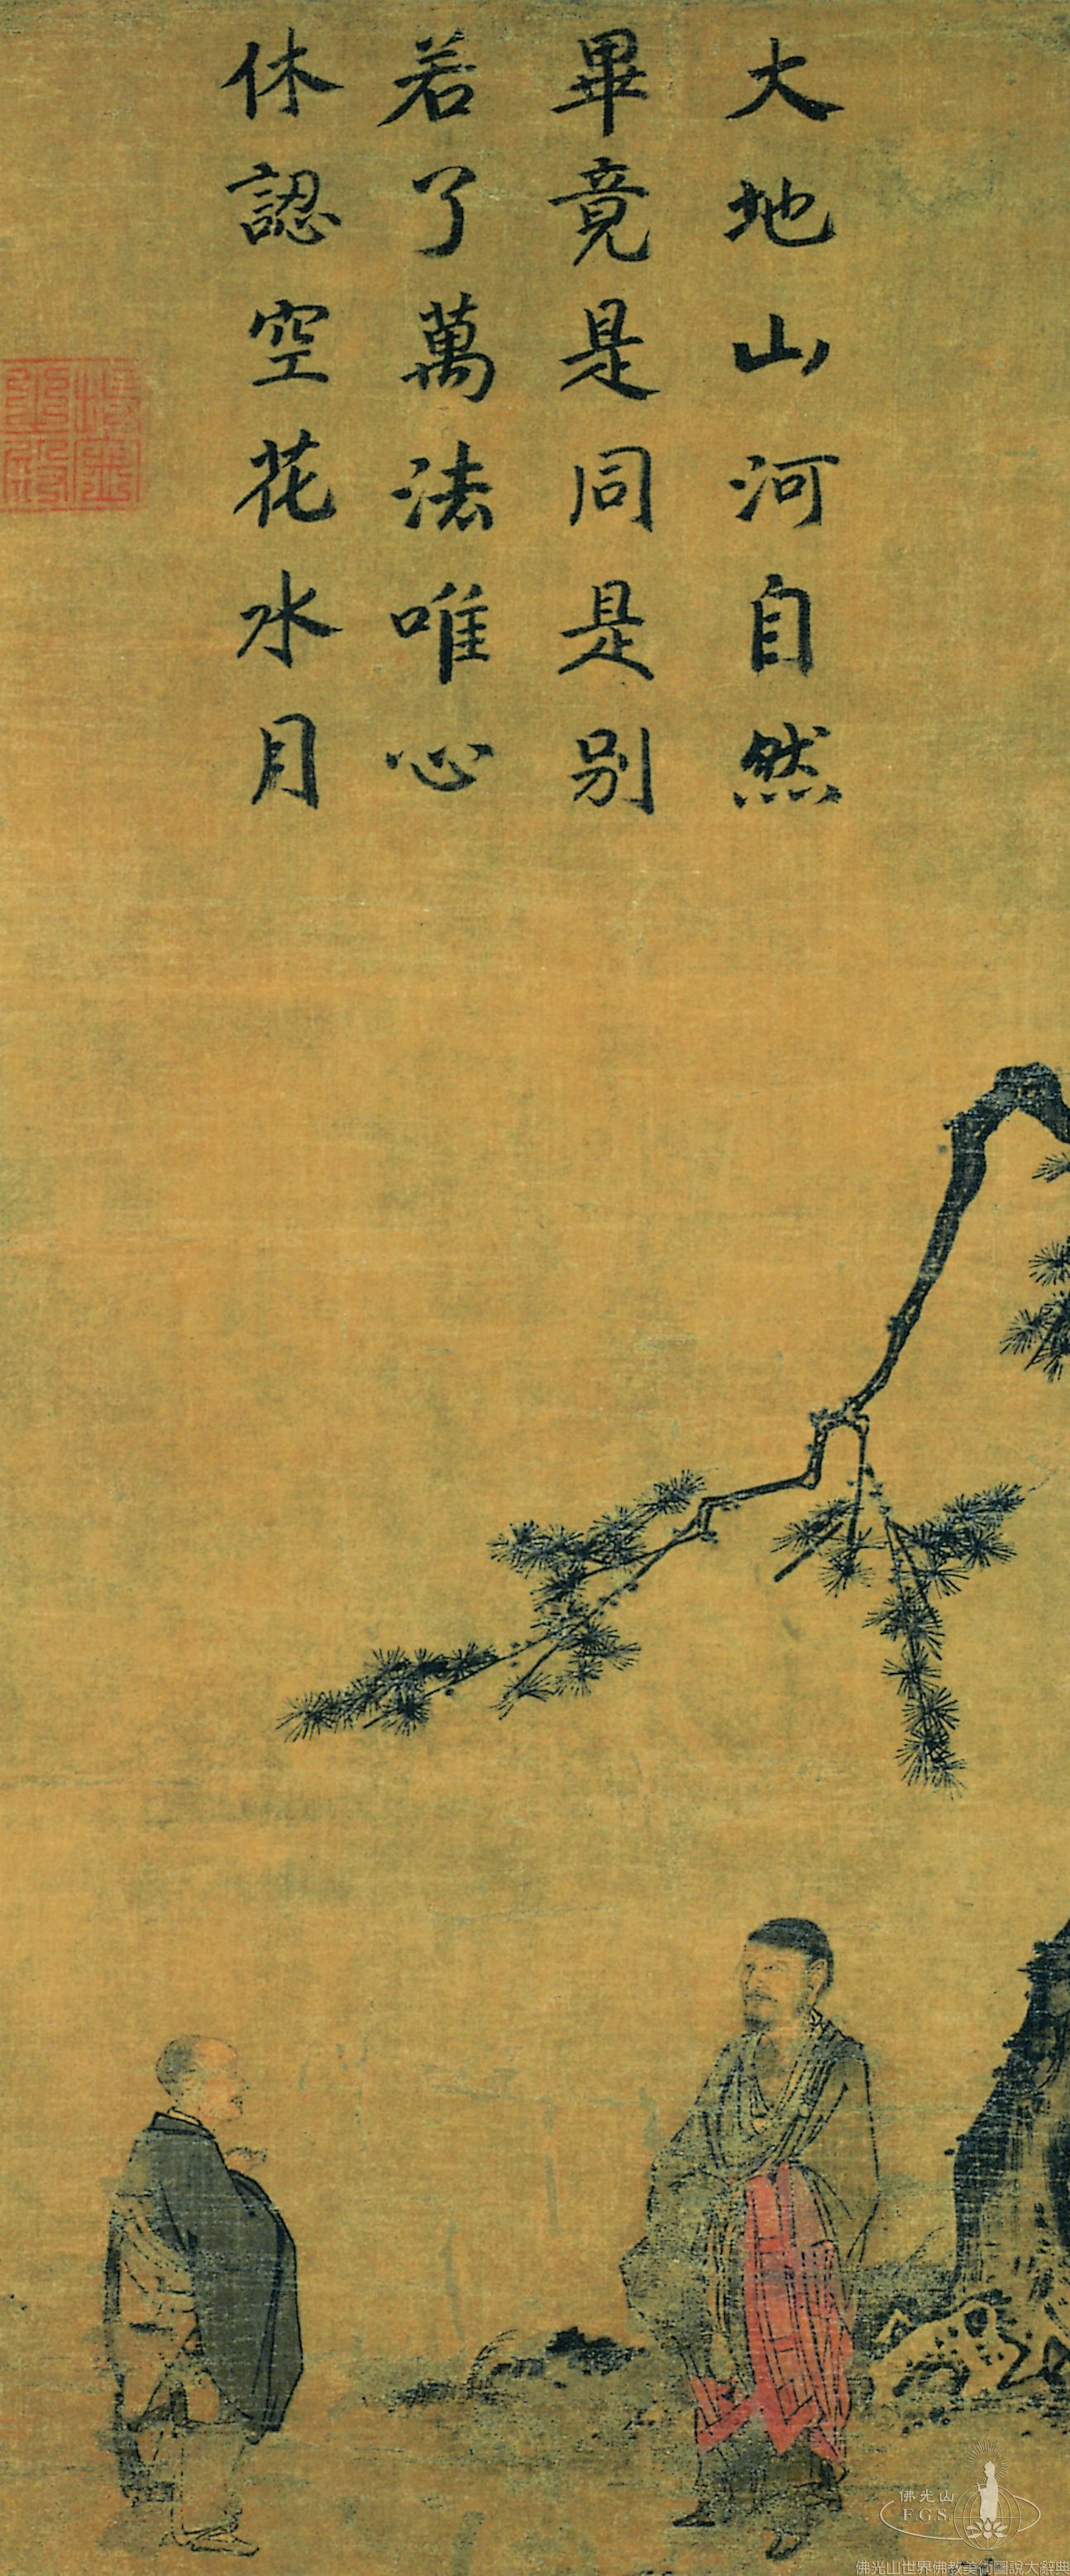 大地山河自然
畢竟是同是別
若了萬法唯心
休認空花水月
佛光山
F.G.S.
佛光山世界佛教美術圖說大辭典